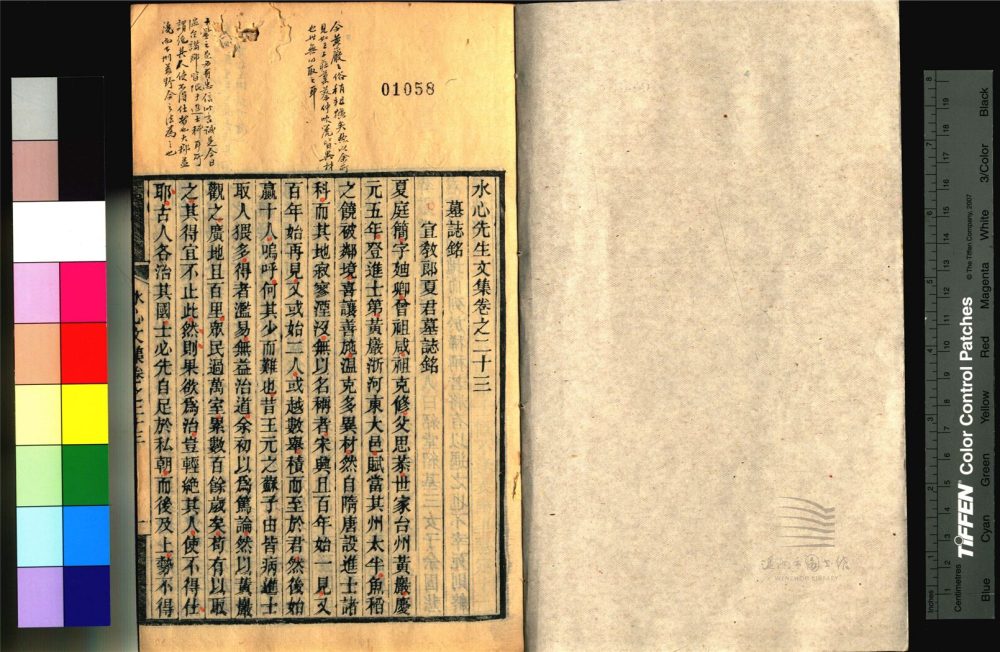 01058
水心先生文集卷之二十三
墓誌銘
宣敎郎夏君墓誌銘
夏庭簡字迪卿曾祖咸祖克修父思恭世家台州黃巖慶
元五年登進士第黃巖浙河東大邑賦當其州太半魚稻
之饒破鄰境喜讓善施溫克多異材然自隋唐設進士諸
科而其地寂寥湮沒無以名稱者宋興且百年始一見又
百年始再見又或始二人或越數舉積而至於君然後始
贏十人嗚呼何其少而難也昔王元之蘇子由皆病進士
取人猥多得者濫易無益治道余初以爲篤論然以黃巖
觀之廣地且百里眾民過萬室累數百餘歲矣苟有以取
之其得宜不止此然則果欲爲治豈輕絕其人使不得仕
耶古人各治其國士必先自足於私朝而後及上勢不得
水心文集卷之二十三
溫州市圖書館
WENZHOU LIBRARY
TIFFEN Color Control Patches
© The Tiffen Company, 2007
Inches
Centimetres
Blue
Cyan
Green
Yellow
Red
Magenta
White
3/Color
Black